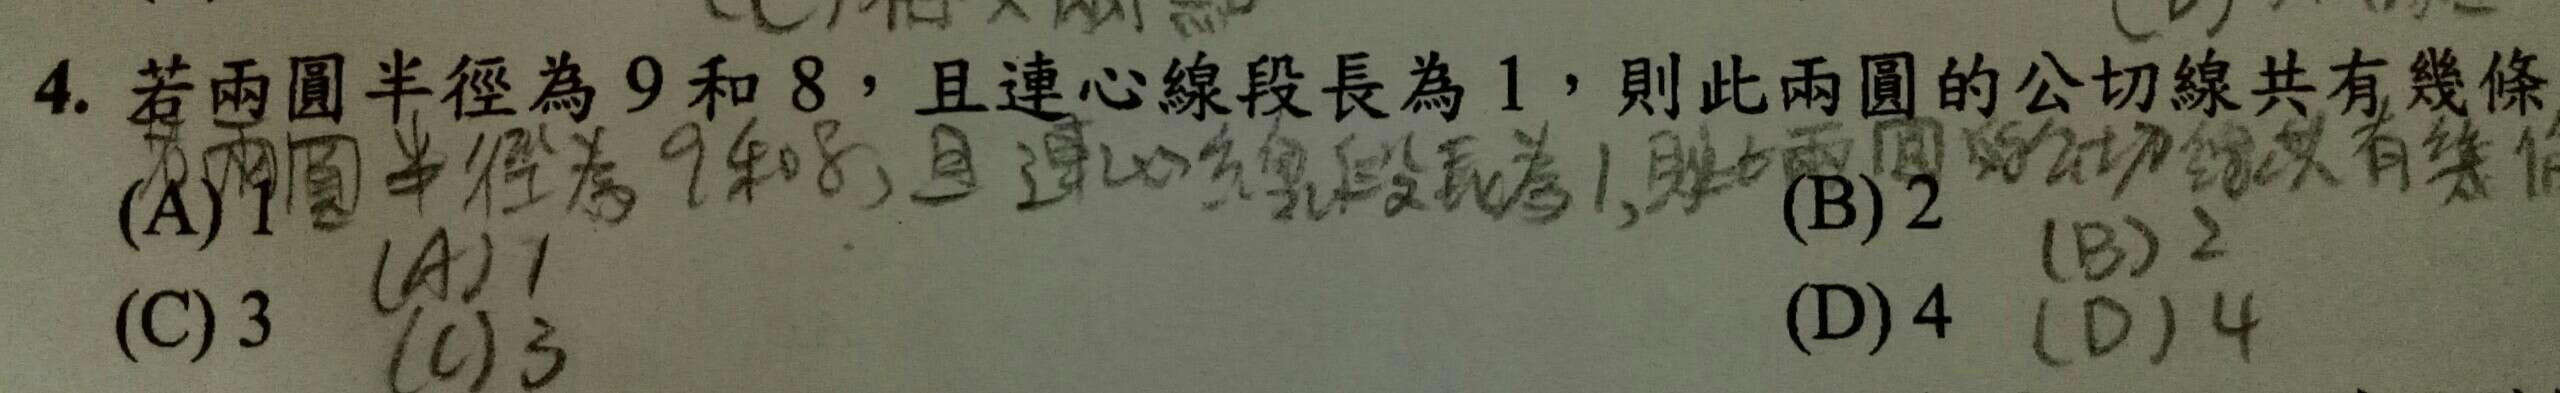 4. 若兩圓半徑為9和8，且連心線段長為1，則此兩圓的公切線共有幾條
若兩圓半徑為9和8，且連心線段長為1，則此兩圓的公切線共有幾條
(A) 1 (B) 2
(A) 1 (B) 2
(C) 3 (D) 4
(C) 3 (D) 4